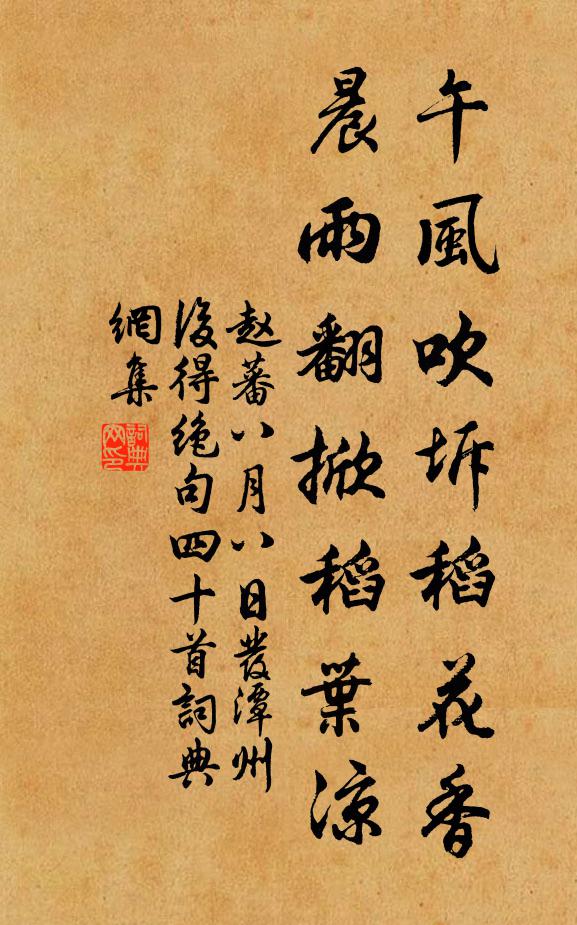 午風吹坼稻花香
晨雨翻掀稻葉凉
赵蕃八月八日發潭州
後得絶句四十首詞典
網集
詞典網印